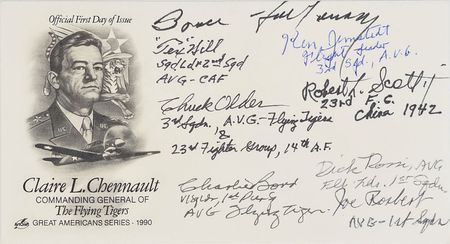 Official First Day of Issue
Claire L. Chennault
COMMANDING GENERAL OF
The Flying Tigers
GREAT AMERICANS SERIES · 1990
"Tex" Hill
Sqd Ldr 2nd Sqd
AVG - CAF
Chuck Older
3rd Sqdn. A.V.G. - Flying Tigers
&
23rd Fighter Group, 14th A.F.
Charlie Bond
AVG Flying Tiger.
Ken Jernstedt
Flight Leader
3rd Sqd., A.V.G.
Robert L. Scott
23rd F.G.
China 1942
Dick Rossi, AVG
Flt Ldr. 1st Sqdn
Joe Rosbert
AVG - 1st Sqdn